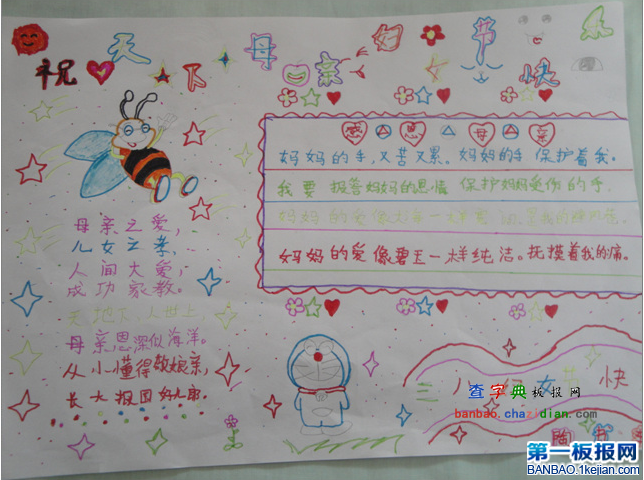 祝天下母亲妇女节快乐
感恩母亲
妈妈的手,又苦又累。妈妈的手保护着我。
我要报答妈妈的恩情 保护妈妈受伤的手
妈妈的爱像大海一样
妈妈的爱像碧玉一样纯洁。抚摸着我的痛
母亲之爱,
儿女之亲,
人间大爱,
成功家教。
天地下 人世上,
母亲恩深似海洋。
从小懂得敬娘亲,
长大报国好儿郎。
三八妇女节快
查字典板报网
banbao.chazidian.com
第一板报网
BANBAO.1kejian.com